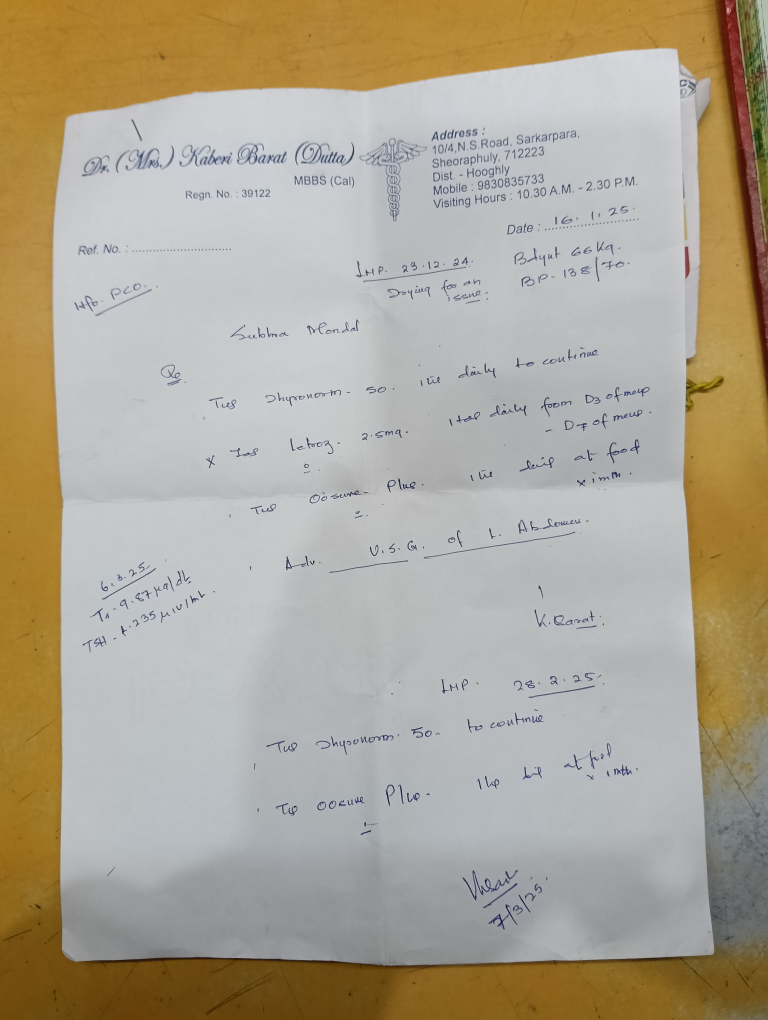 Dr. (Mrs.) Kaberi Barat (Dutta)
MBBS (Cal)
Regn. No. : 39122
Address :
10/4,N.S.Road, Sarkarpara,
Sheoraphuly, 712223
Dist. - Hooghly
Mobile : 9830835733
Visiting Hours : 10.30 A.M. - 2.30 P.M.
Ref. No. :
Date : 16.1.25.
H/o. PCO.
LMP. 23.12.24.
Trying for an
issue.
66 Kg.
BP- 138/70.
Subhra Mondal
Tab Thyronorm- 50. daily to continue
x Tab Letroz. 2.5mg. 1 tab daily from D3 of
- D7 of
Tab Oosure Plus. at food
x 1 mth.
Adv. U.S.G. of L. Abdomen.
6.3.25.
T4-9.87 µg/dL
TSH - 235 µIU/ml.
K. Barat.
LMP. 28.2.25.
Tab Thyronorm. 50- to continue
Tab Oosure Plus. at food
x 1 mth.
7/3/25.